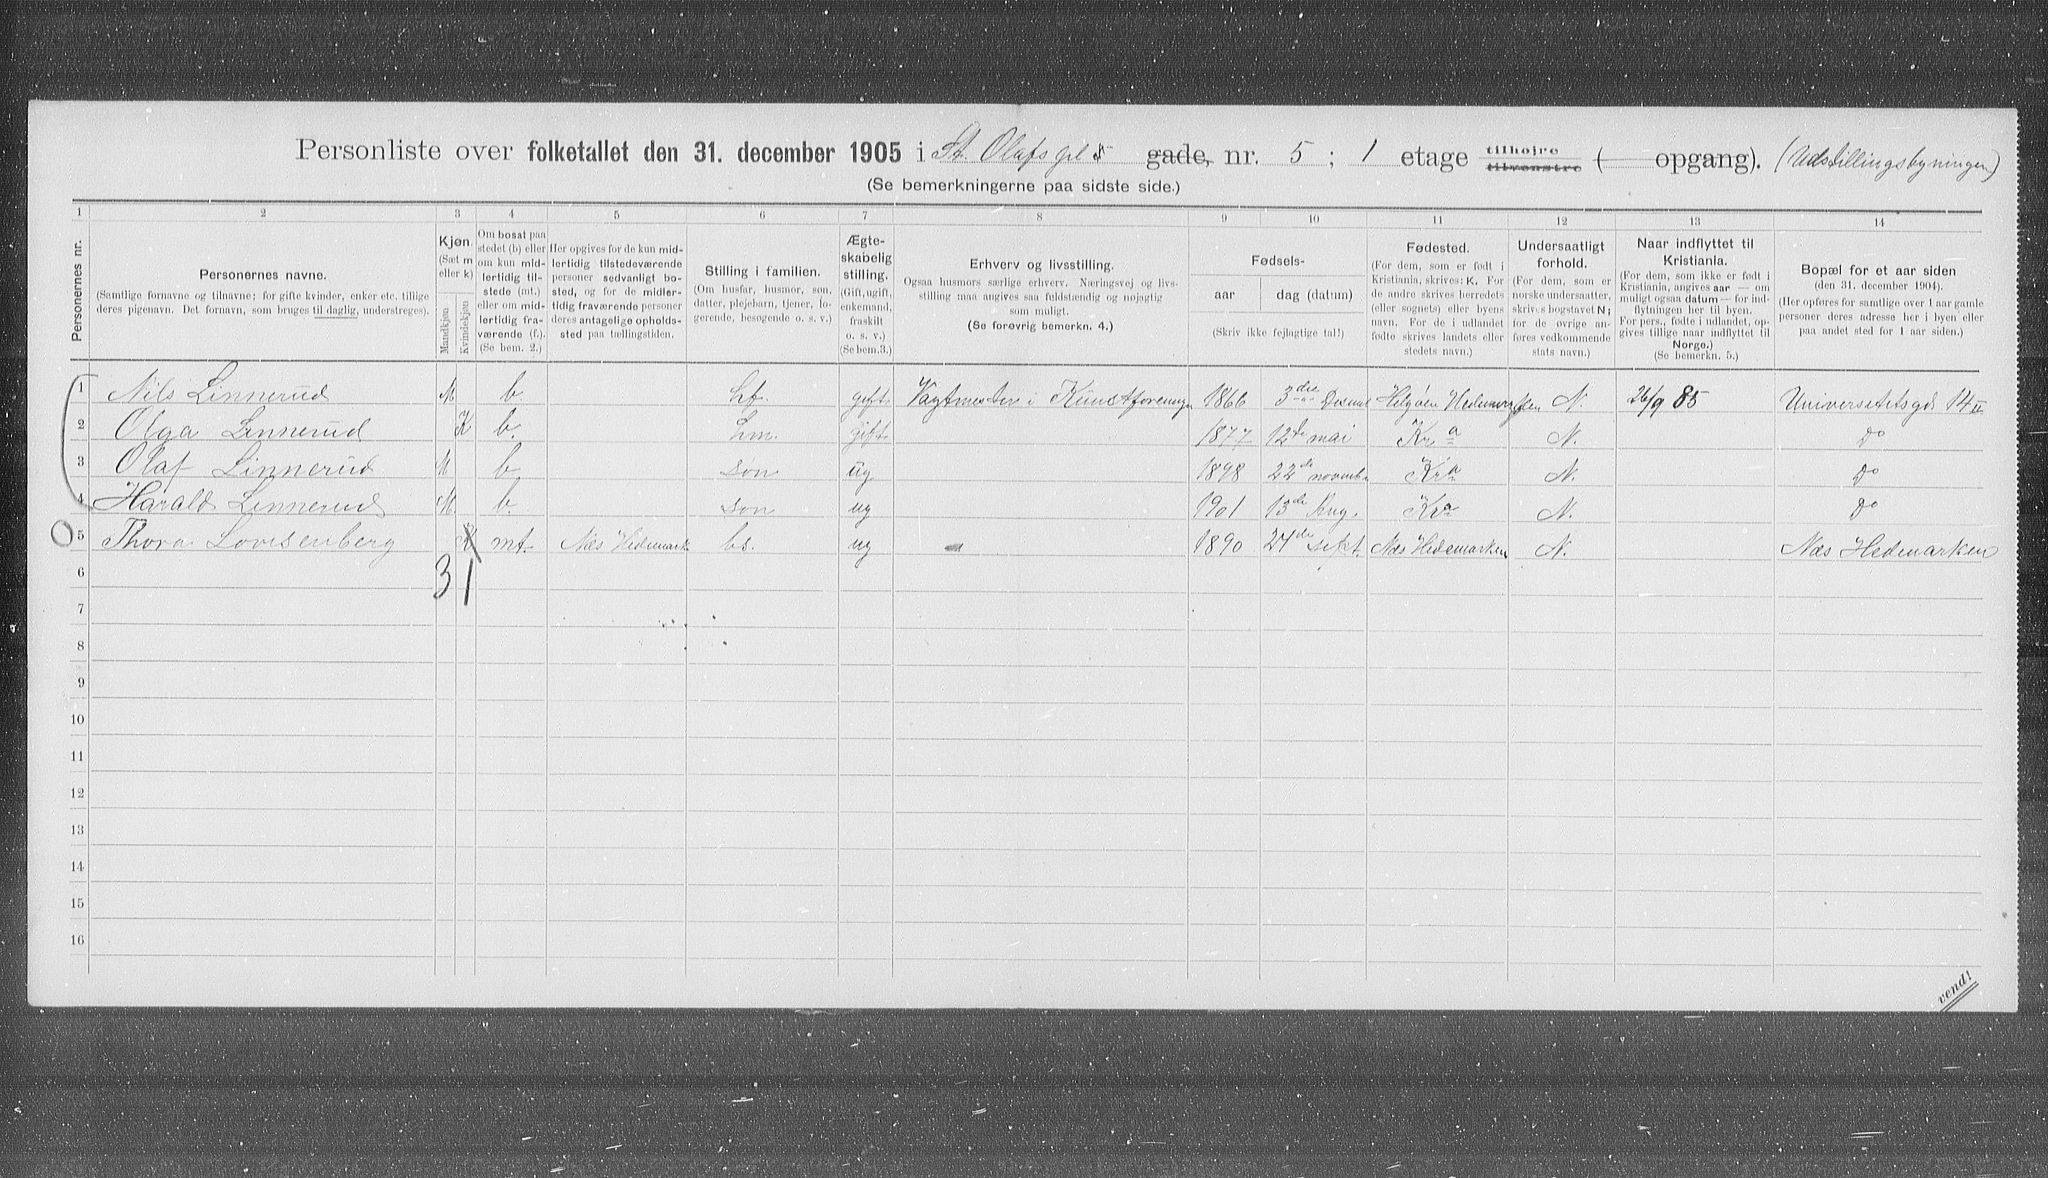 Personliste over folketallet den 31. december 1905 i St. Olafs pl 5 gade, nr. 5 ; 1 etage tilhøjre tilvenstre ( opgang). (Udstillingsbygningen)
(Se bemerkningerne paa sidste side.)
1 2 3 4 5 6 7 8 9 10 11 12 13 14
Personernes nr.
Personernes navne.
(Samtlige fornavne og tilnavne; for gifte kvinder, enker etc. tillige
deres pigenavn. Det fornavn, som bruges til daglig, understreges).
Kjøn.
(Sæt m
eller k)
Mandkjøn
Kvindekjøn
Om bosat paa
stedet (b) eller
om kun mid-
lertidig til-
stede (mt.)
eller om mid-
lertidig fra-
værende (f.).
(Se bem. 2.)
Her opgives for de kun mid-
lertidig tilstedeværende
personer sedvanligt bo-
sted, og for de midler-
tidig fraværende personer
deres antagelige opholds-
sted paa tællingstiden.
Stilling i familien.
(Om husfar, husmor, søn,
datter, plejebarn, tjener, lo-
gerende, besøgende o. s. v.)
Ægte-
skabelig
stilling.
(Gift, ugift,
enkemand,
fraskilt
o. s. v.)
(Se bem. 3.)
Erhverv og livsstilling.
Ogsaa husmors særlige erhverv. Næringsvej og livs-
stilling maa angives saa fuldstændig og nøjagtig
som muligt.
(Se forøvrig bemerkn. 4.)
Fødsels-
aar
dag (datum)
(Skriv ikke fejlagtige tal!)
Fødested.
(For dem, som er født i
Kristiania, skrives: K. For
de andre skrives herredets
(eller sognets) eller byens
navn. For de i udlandet
fødte skrives landets eller
stedets navn.)
Undersaatligt
forhold.
(For dem, som er
norske undersaatter,
skrives bogstavet N;
for de øvrige an-
føres vedkommende
stats navn.)
Naar indflyttet til
Kristiania.
(For dem, som ikke er født i
Kristiania, angives aar — om
muligt ogsaa datum — for ind-
flytningen her til byen.
For pers., fødte i udlandet, op-
gives tillige naar indflyttet til
Norge.)
(Se bemerkn. 5.)
Bopæl for et aar siden
(den 31. december 1904).
(Her opføres for samtlige over 1 aar gamle
personer deres adresse her i byen eller
paa andet sted for 1 aar siden.)
1 Nils Linnerud M b. hf. gift Vagtmester i Kunstforeningen 1866 3die Helgøen Hedemarken N. 26/9 85 Universitetsgd 14 II
2 Olga Linnerud K b. hm. gift 1877 12de mai Kr a N. Do
3 Olaf Linnerud M b søn ug 1898 22de novemb. Kra N. Do
4 Harald Linnerud M. b. søn ug 1901 13de Aug. Kra N. Do
5 Thora Lovisenberg K mt. Næs Hedemark bs. ug 1890 27de sept. Næs Hedemarken N. Næs Hedemarken
6 3 1
7
8
9
10
11
12
13
14
15
16
vend!